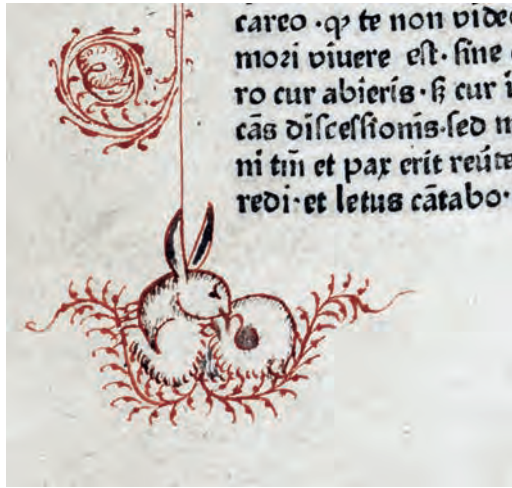 careo ·ꝙ te non vide
mori viuere est· sine
ro cur abieris· ẜ cur
cãs discessionis·sed
ni tm̃ et pax erit reũte
redi·et letus cãtabo·